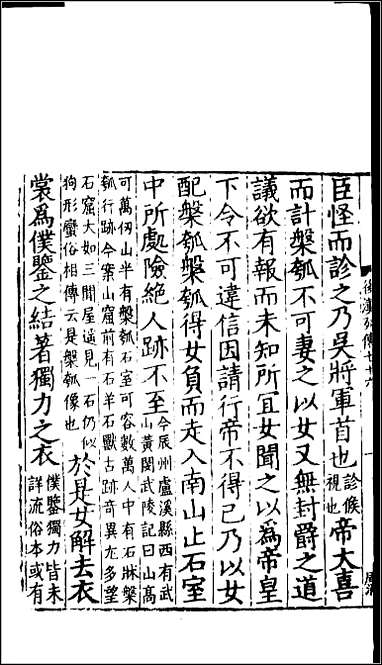 後漢列傳七十六
臣怪而診之乃吳將軍首也診候視也帝大喜
而計槃瓠不可妻之以女又無封爵之道
議欲有報而未知所宜女聞之以爲帝皇
下令不可違信因請行帝不得已乃以女
配槃瓠槃瓠得女負而走入南山止石室
中所處險絶人跡不至今辰州盧溪縣西有武山黃閔武陵記曰山高
可萬仞山半有槃瓠石室可容數萬人中有石牀槃
瓠行跡今案山窟前有石羊石獸古跡奇異尤多望
石窟大如三間屋遥見一石仍似
狗形蠻俗相傳云是槃瓠像也於是女解去衣
裳爲僕鑒之結著獨力之衣僕鑒獨力皆未詳流俗本或有